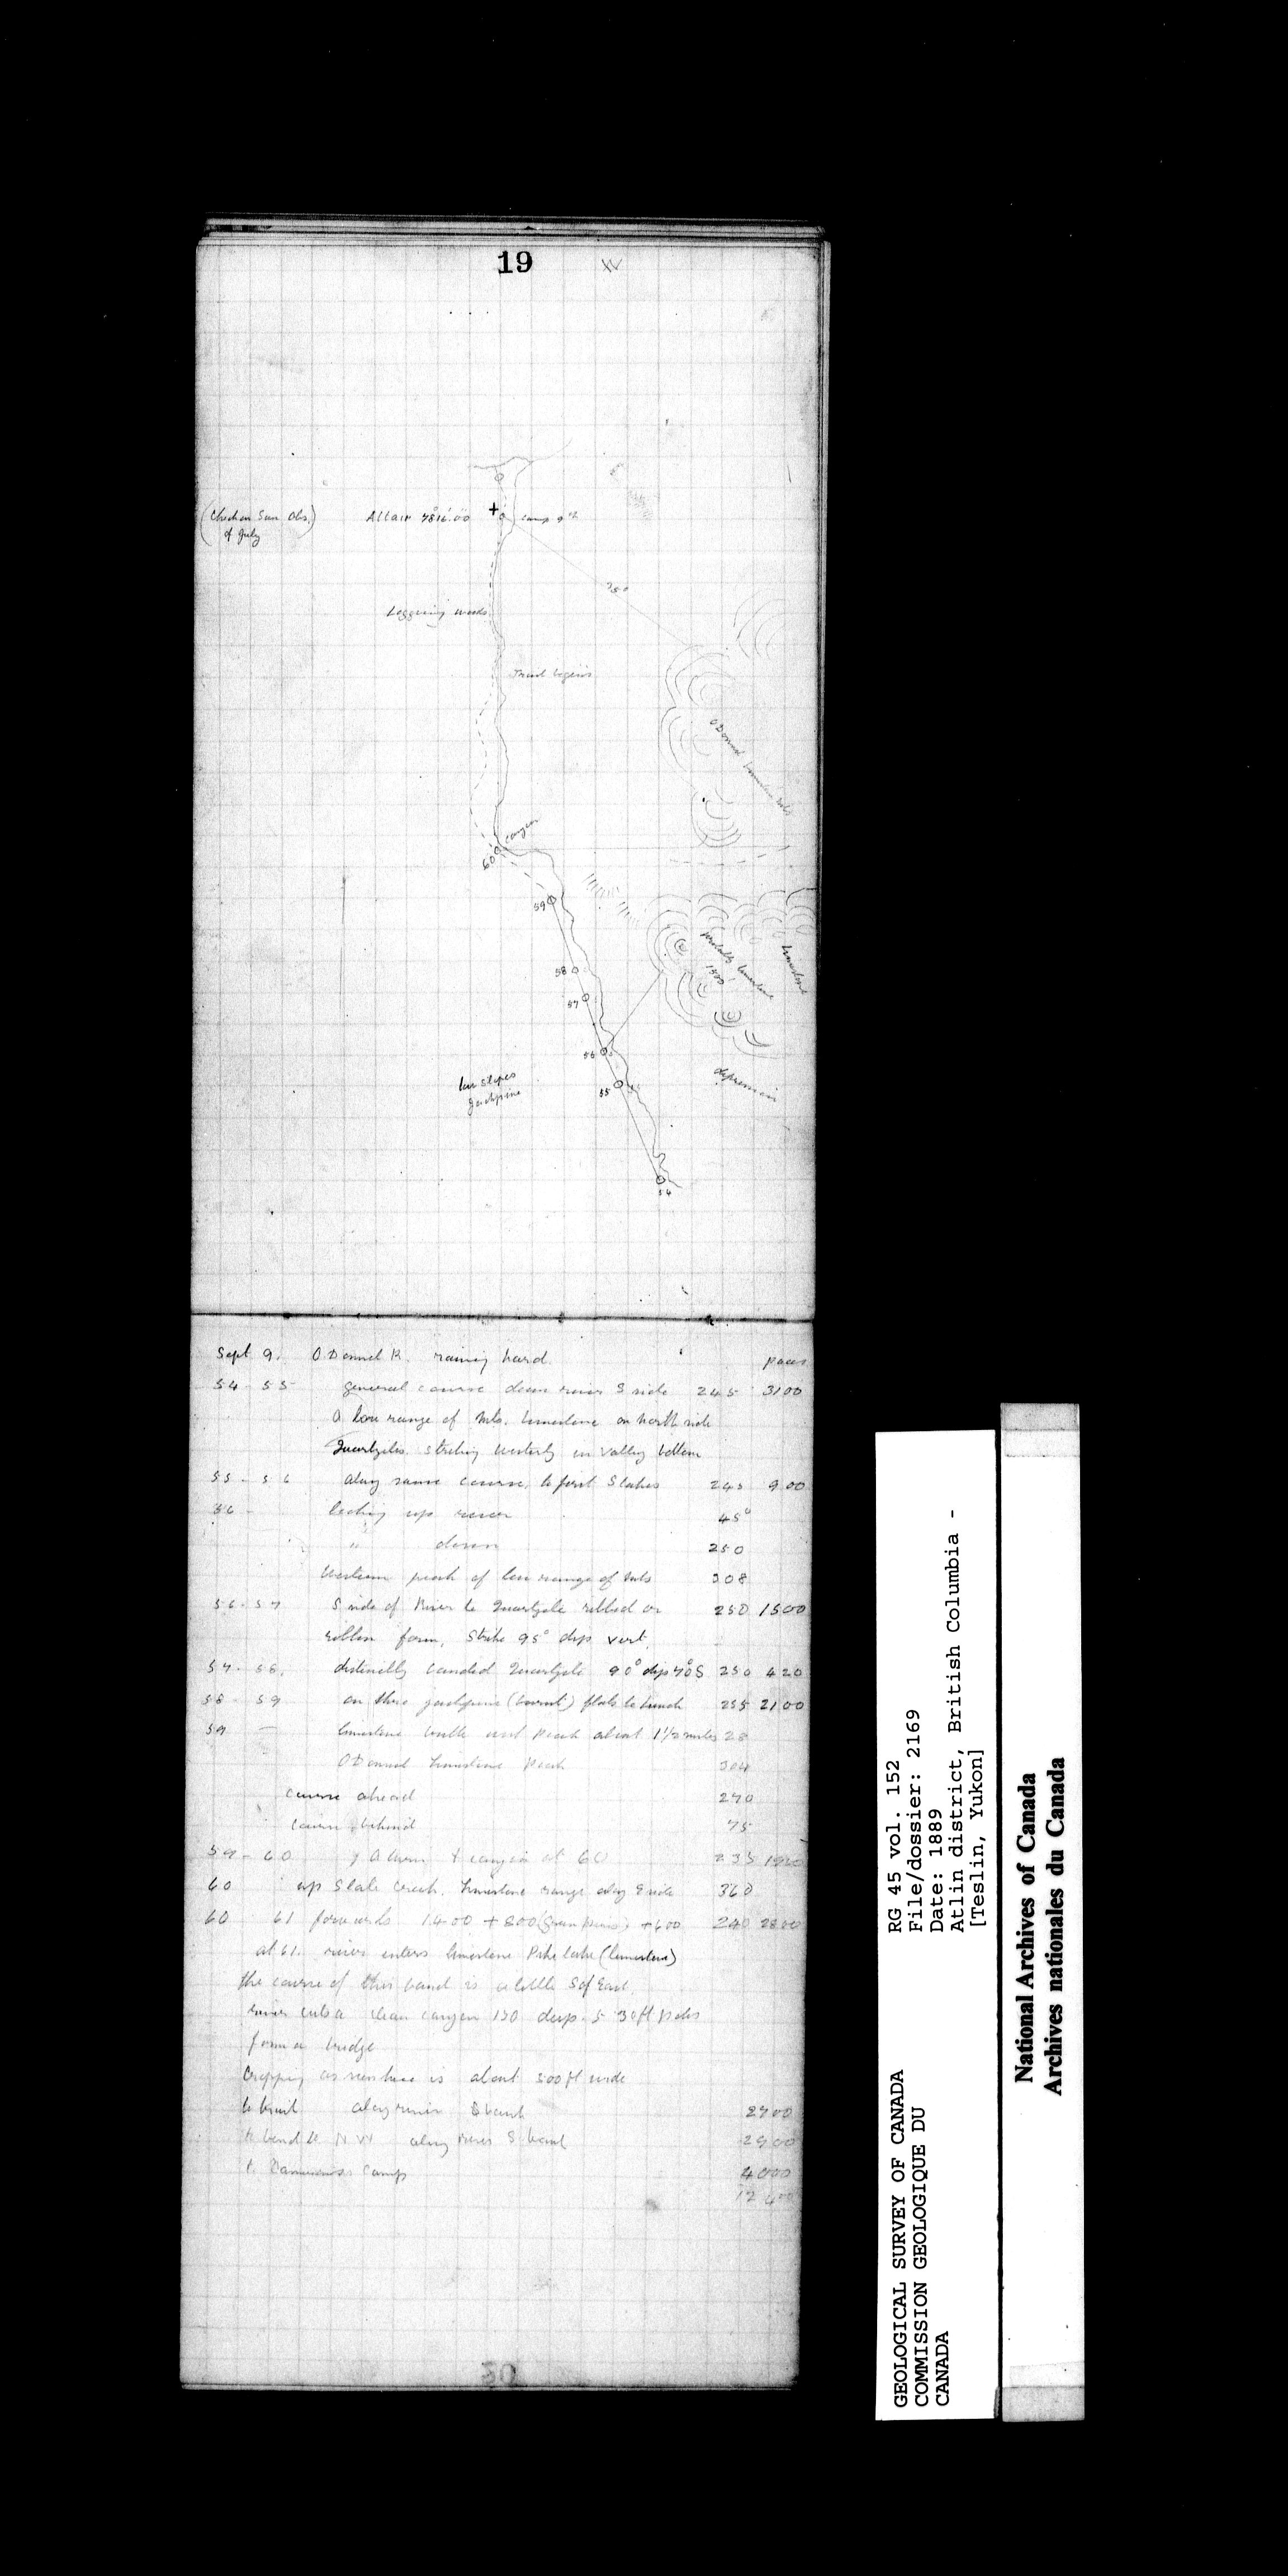 19
(Check on Sun Obs.
of July
Altair 78°16'.00
camp 9th
Trail begins
O'Donnel limestone Mts
canyon
60
59
probably limestone
1500
limestone
58
57
56
low slopes
Jackpine
55
depression
54
Sept 9. O'Donnel R. raining hard. paces
54 - 55 general course down river S side 245 3100
A low range of Mts. limestone on north side
Quartzites striking westerly in valley bottom
55 - 56 along same course, to first Slates 245 900
56 - looking up river 45°
" down 250
Western peak of low range of Mts 308
56 - 57 S side of River to Quartzite ribbed or
ribbon form, Strike 95° dip vert.
57 - 58. distinctly banded Quartzite 90° dip 70°S 250 420
58 - 59 on thro jackpine (burnt) flats to lunch 255 2100
59 - limestone and peak about 1 1/2 miles 28
O'Donnel limestone peak 304
course ahead 270
course behind 75
59 - 60 canyon at 60 235
60 up Slate Creek. limestone range along E side 360
60 61 forwards 1400 + 800 + 600 240 2800
at 61. river enters limestone Pike lake (limestone)
the course of this band is a little S of East.
river cuts a clean canyon 150 deep. 5 30 ft
form a bridge
Cropping as seen here is about 500 ft wide
to trail along river S bank 2700
to bend to N W along river S bank 2900
to camp 4000
12400
50
GEOLOGICAL SURVEY OF CANADA
COMMISSION GEOLOGIQUE DU
CANADA
RG 45 vol. 152
File/dossier: 2169
Date: 1889
Atlin district, British Columbia -
[Teslin, Yukon]
National Archives of Canada
Archives nationales du Canada